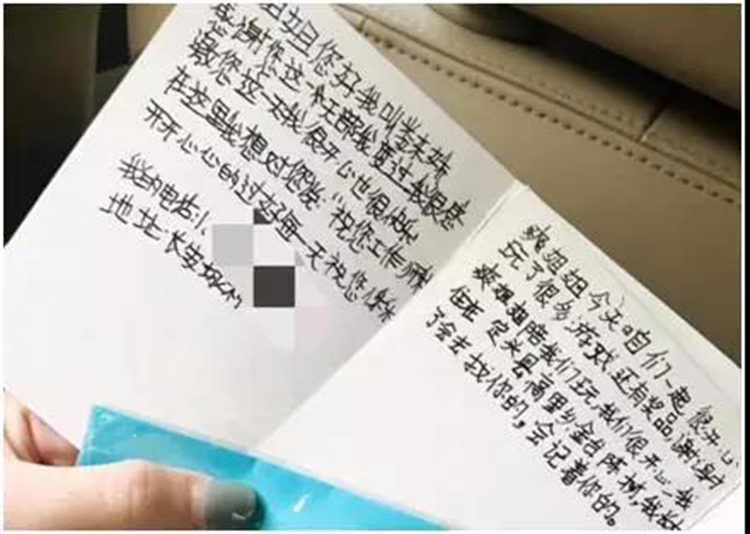 姐姐您好我叫
感谢您这个天陪我度过我很感
谢您这一天我很开心也很快乐
在这里我想对您说“祝您工作顺
开开心心的过好每一天祝您身体
我的电话
地址:长安
姨姐姐今天咱们一起很开心
玩了很多游戏还有奖品,谢谢
姨姐姐陪我们玩,我们很开心,我
住在 定头县高里乡金台陈村,我
了会去找你的,会记着你的。